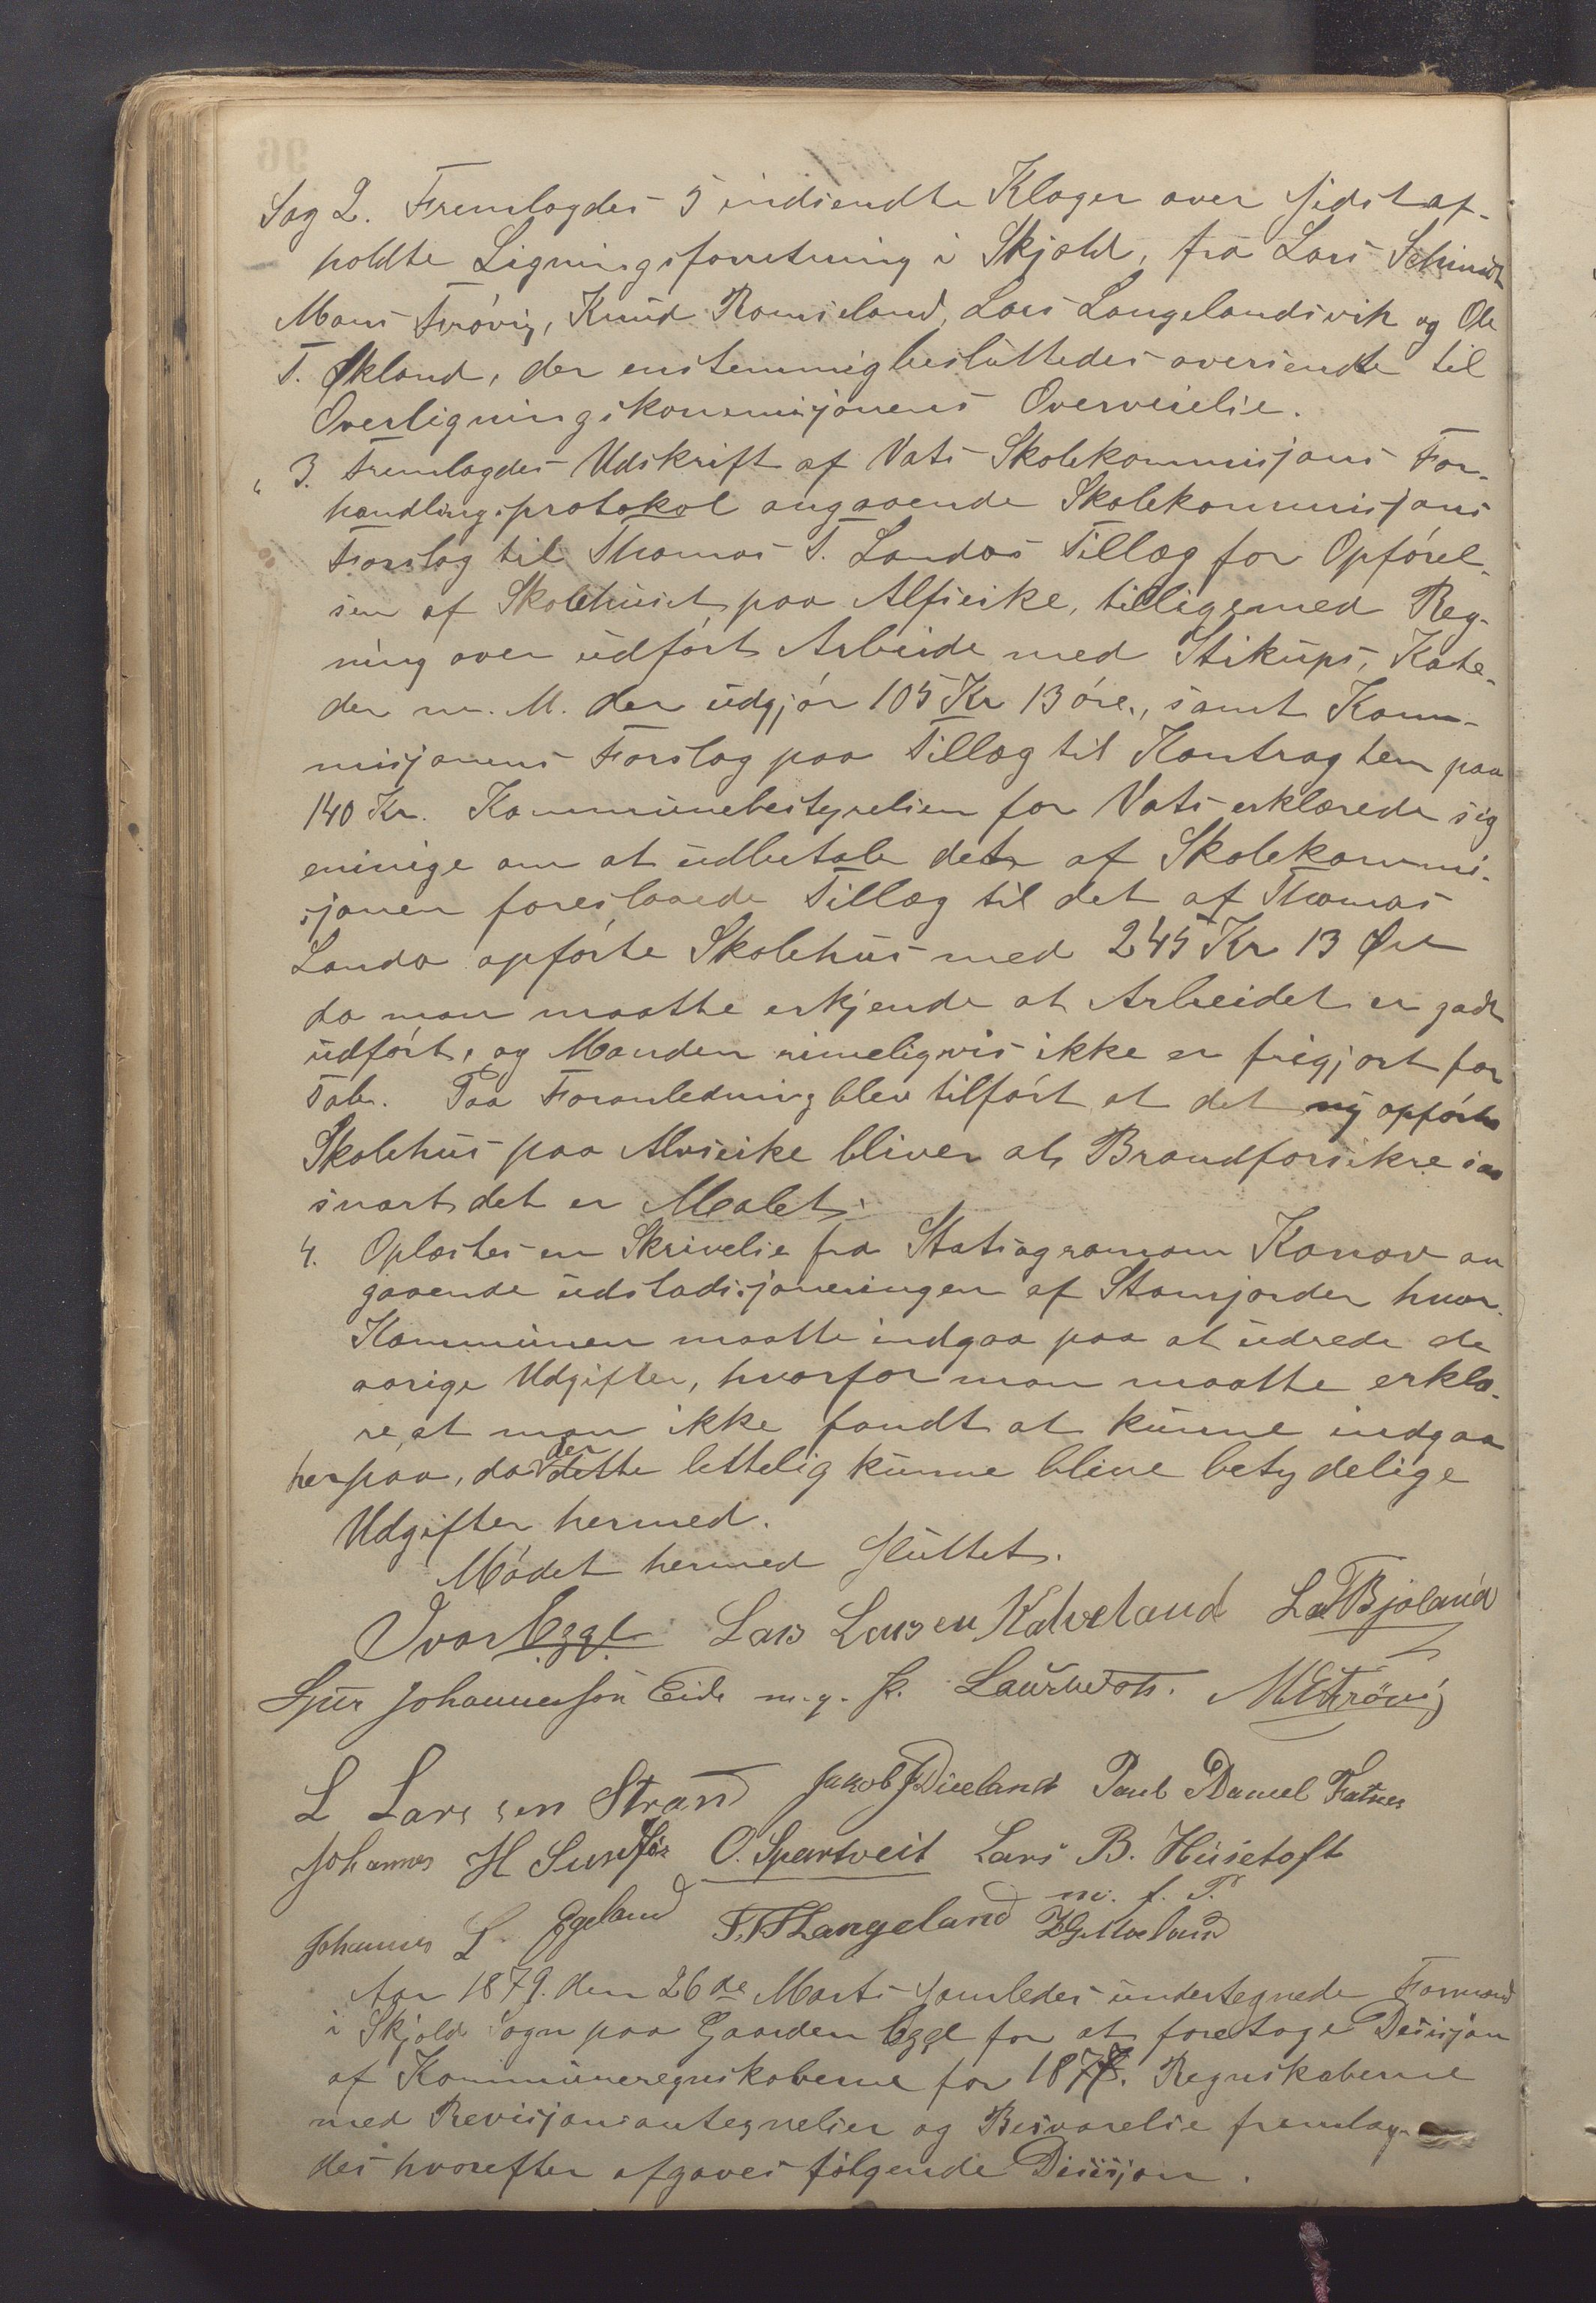 Sag 2. Fremlagdes 5 indsendte Klager over sidst af-
holdte Ligningsforretning i Skjold, fra Lars Schmidt
Mons Trövig, Knud Ramseland, Lars Langelandsvik og Ole
T. Økland, der enstemmig besluttedes oversendte til
Overligningskommisjonens Overveielse.
" 3. Fremlagdes Udskrift af Vats Skolekommisjons For-
handlingsprotokol angaaende Skolekommisjons
Forslag til Thomas T. Landas Tillæg for Opförel-
sen af Skolehuset paa Alfseike, tilligemed Reg-
ning over udfört Arbeide med Stikups, Kate-
der m. M. der udgjör 105 Kr 13 öre, samt Kom-
misjonens Forslag paa Tillæg til Kontragten paa
140 Kr. Kommunebestyrelsen for Vats erklærede sig
eninige om at udbetale dette af Skolekommi-
sjonen foreslaaede Tillæg til det af Thomas
Landa opförte Skolehus med 245 Kr 13 Øre
da man maatte erkjende at Arbeidet er godt
udfört, og Manden rimeligvis ikke er frigjort for
Tab. Paa Foranledning blev tilfört at det ny opförte
Skolehus paa Alvseike bliver at Brandforsikre saa
snart det er Malet.
4. Oplæstes en Skrivelse fra Statsagronom Konow an
gaaende udstadisjoneringen af Stamjorder hvor
Kommunen maatte indgaa paa at udrede de
aarige Udgifter, hvorfor man maatte erklæ-
re, at man ikke fandt at kunne indgaa
herpaa, da der dette lettelig kunne blive betydelige
Udgifter hermed.
Mödet hermed sluttet.
Ivar Egge Lars Larsen Kalveland L Bjoland
Sjur Johannesson Eide m. p. P. M E Trövig
L Larssen Strand Jakob J Dueland Poul Daniel Fatnes
Johannes H Sundför O. Spartveit Lars B. Husetoft
m. f. P.
Johannes L Egeland T. T Langeland
Aar 1879. den 26de Marts samledes undertegnede Formænd
i Skjold Sogn paa Gaarden Egge for at foretage Desisjon
af Kommuneregnskaberne for 1877. Regnskaberne
med Revisjonsantegnelser og Besvarelse fremlag-
des hvorefter afgaves fölgende Desisjon.